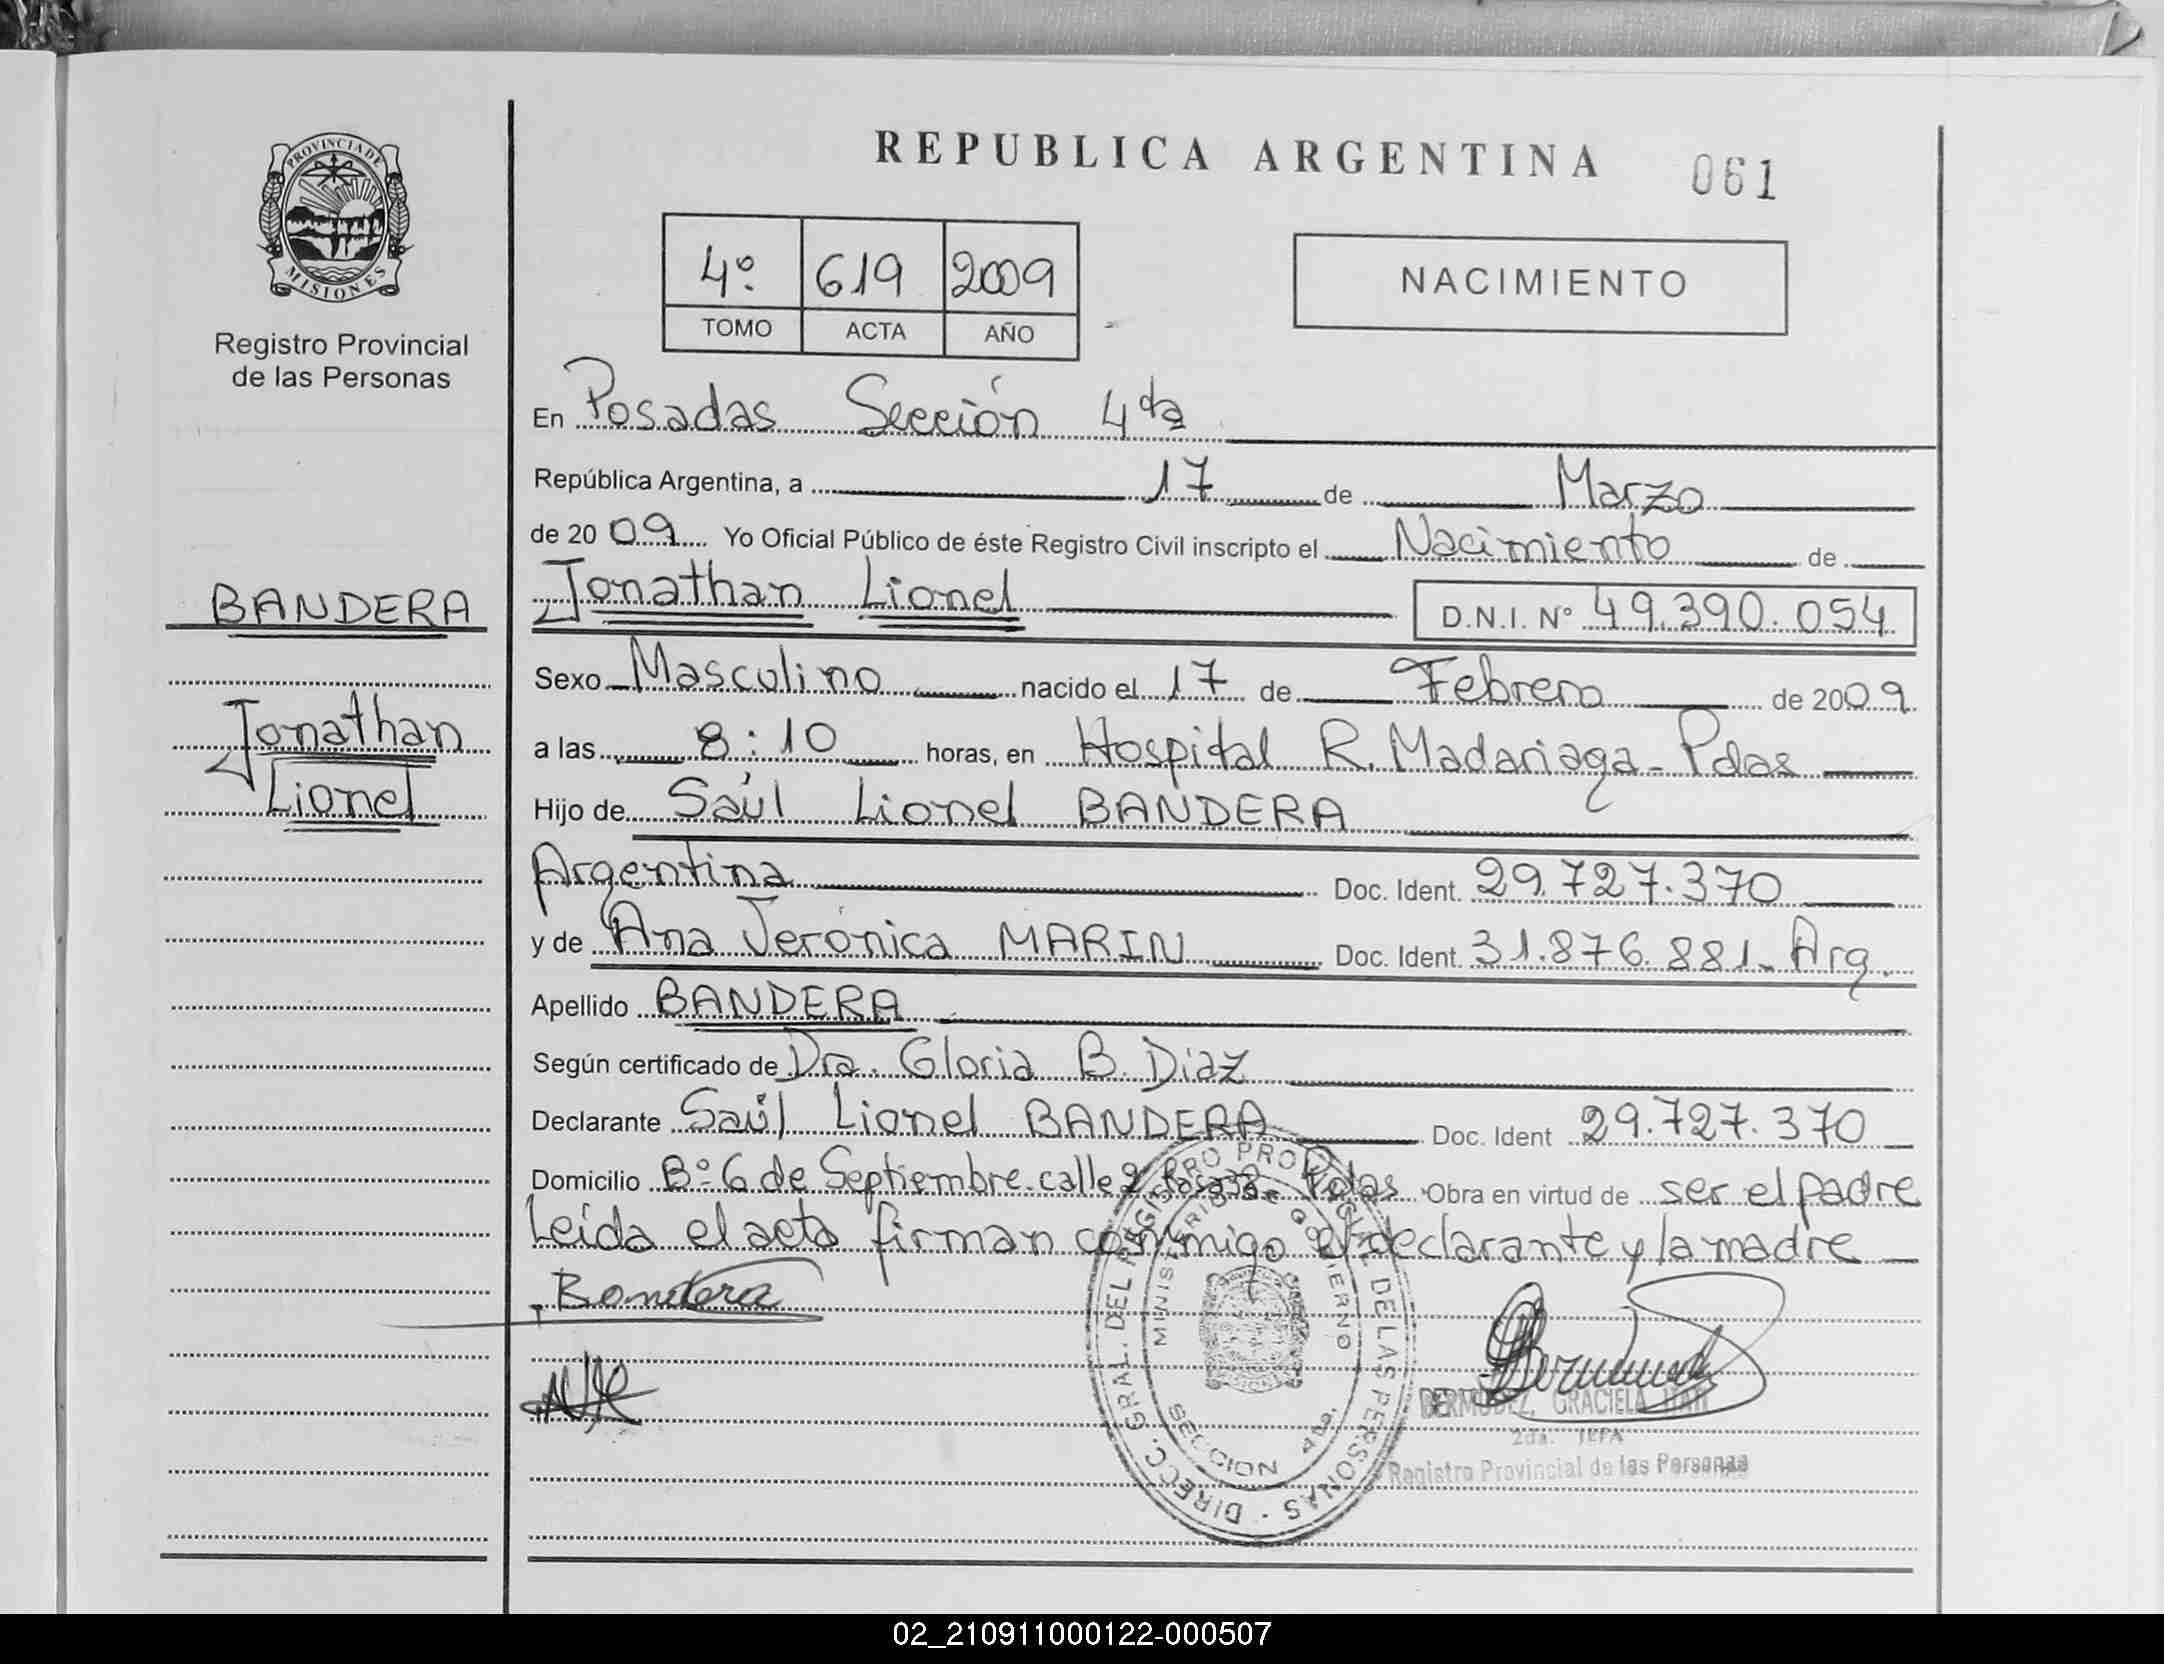 REPUBLICA ARGENTINA 061
PROVINCIA DE
MISIONES
Registro Provincial
de las Personas
4º 619 2009
TOMO ACTA AÑO
NACIMIENTO
En Posadas Sección 4ta
República Argentina, a 17 de Marzo
de 2009 Yo Oficial Público de éste Registro Civil inscripto el Nacimiento de
BANDERA
Jonathan Lionel
D.N.I. Nº 49.390.054
Sexo Masculino nacido el 17 de Febrero de 2009
Jonathan
Lionel
a las 8:10 horas, en Hospital R. Madariaga - Pdas
Hijo de Saúl Lionel BANDERA
Argentina Doc. Ident. 29.727.370
y de Ana Verónica MARIN Doc. Ident. 31.876.881 - Arg.
Apellido BANDERA
Según certificado de Dra. Gloria B. Diaz
Declarante Saúl Lionel BANDERA Doc. Ident 29.727.370
Domicilio Bº 6 de Septiembre calle 2 Pdas Obra en virtud de ser el padre
Leída el acta firman conmigo el declarante y la madre
Bandera
DIRECC. GRAL. DEL REGISTRO PROVINCIAL DE LAS PERSONAS
MINISTERIO DE GOBIERNO
SECCION 4ta.
BERMUDEZ, GRACIELA
2da. JEFA
Registro Provincial de las Personas
02_210911000122-000507